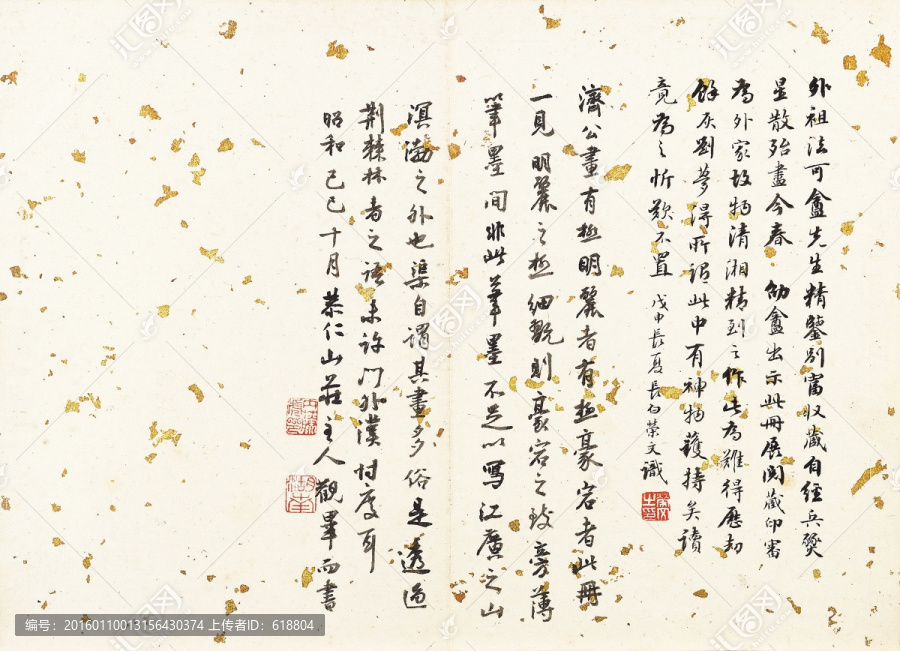 外祖法可盦先生精鑒別富收藏自經兵燹
星散殆盡今春劬盦出示此冊展閱藏印審
為外家故物清湘精到之作此為難得歷劫
餘灰到夢得所謂此中有神物護持矣讀
竟為之忻歎不置 戊申長夏長白榮文識
濟公畫有極明麗者有極豪宕者此冊
一見明麗之極細翫則豪宕之致旁薄
筆墨間非此筆墨不足以寫江廣之山
溟渤之外也渠自謂其畫多俗是透過
荆棘林者之語未許門外漢忖度耳
昭和己巳十月恭仁山莊主人觀畢而書
汇图网
编号：20160110013156430374 上传者ID：618804